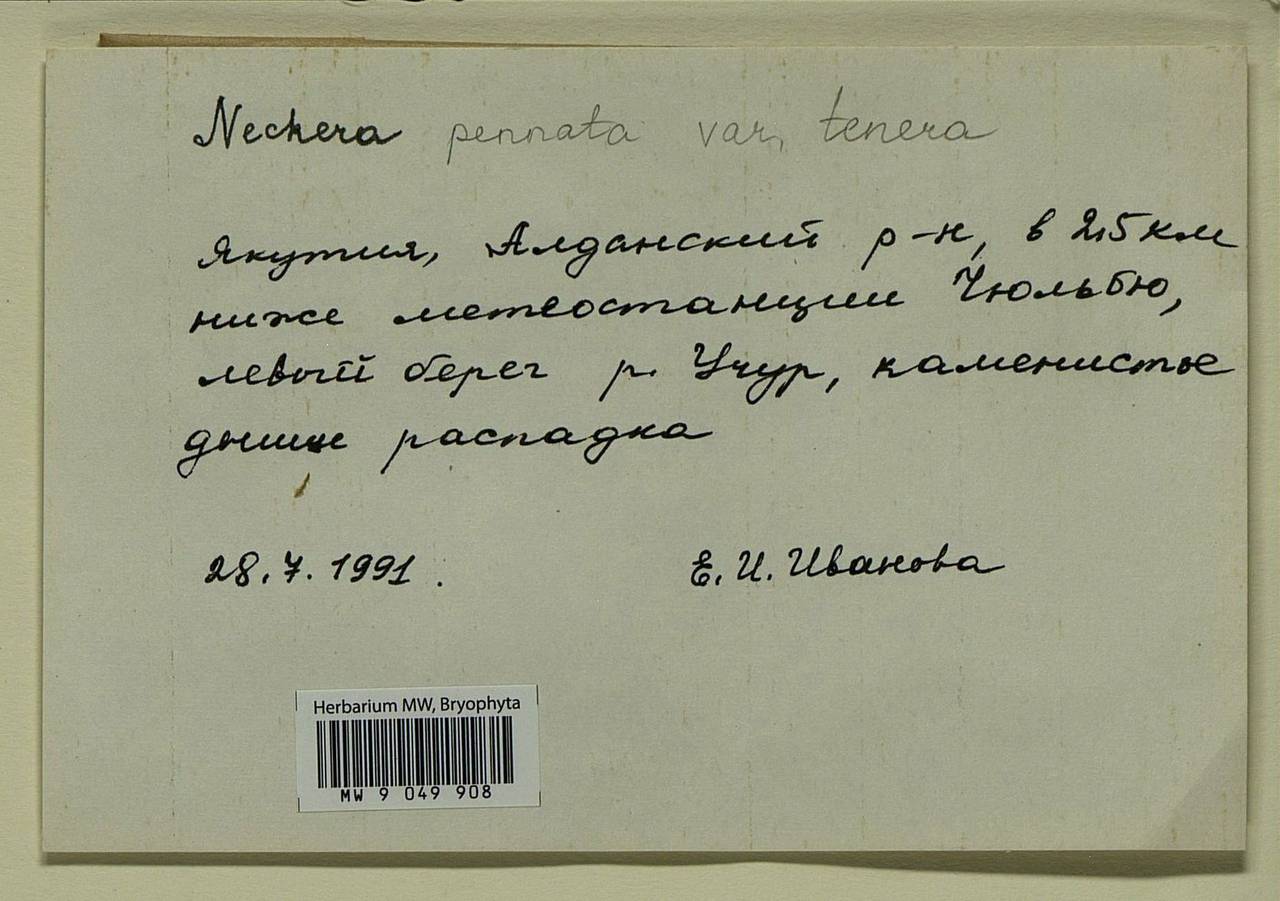 Neckera pennata var. tenera
Якутия, Алданский р-н, в 2,5 км
ниже метеостанции Чюльбю,
левый берег р. Учур, каменистое
днище распадка
28.7.1991.
Е. И. Иванова
Herbarium MW, Bryophyta
MW 9 049 908